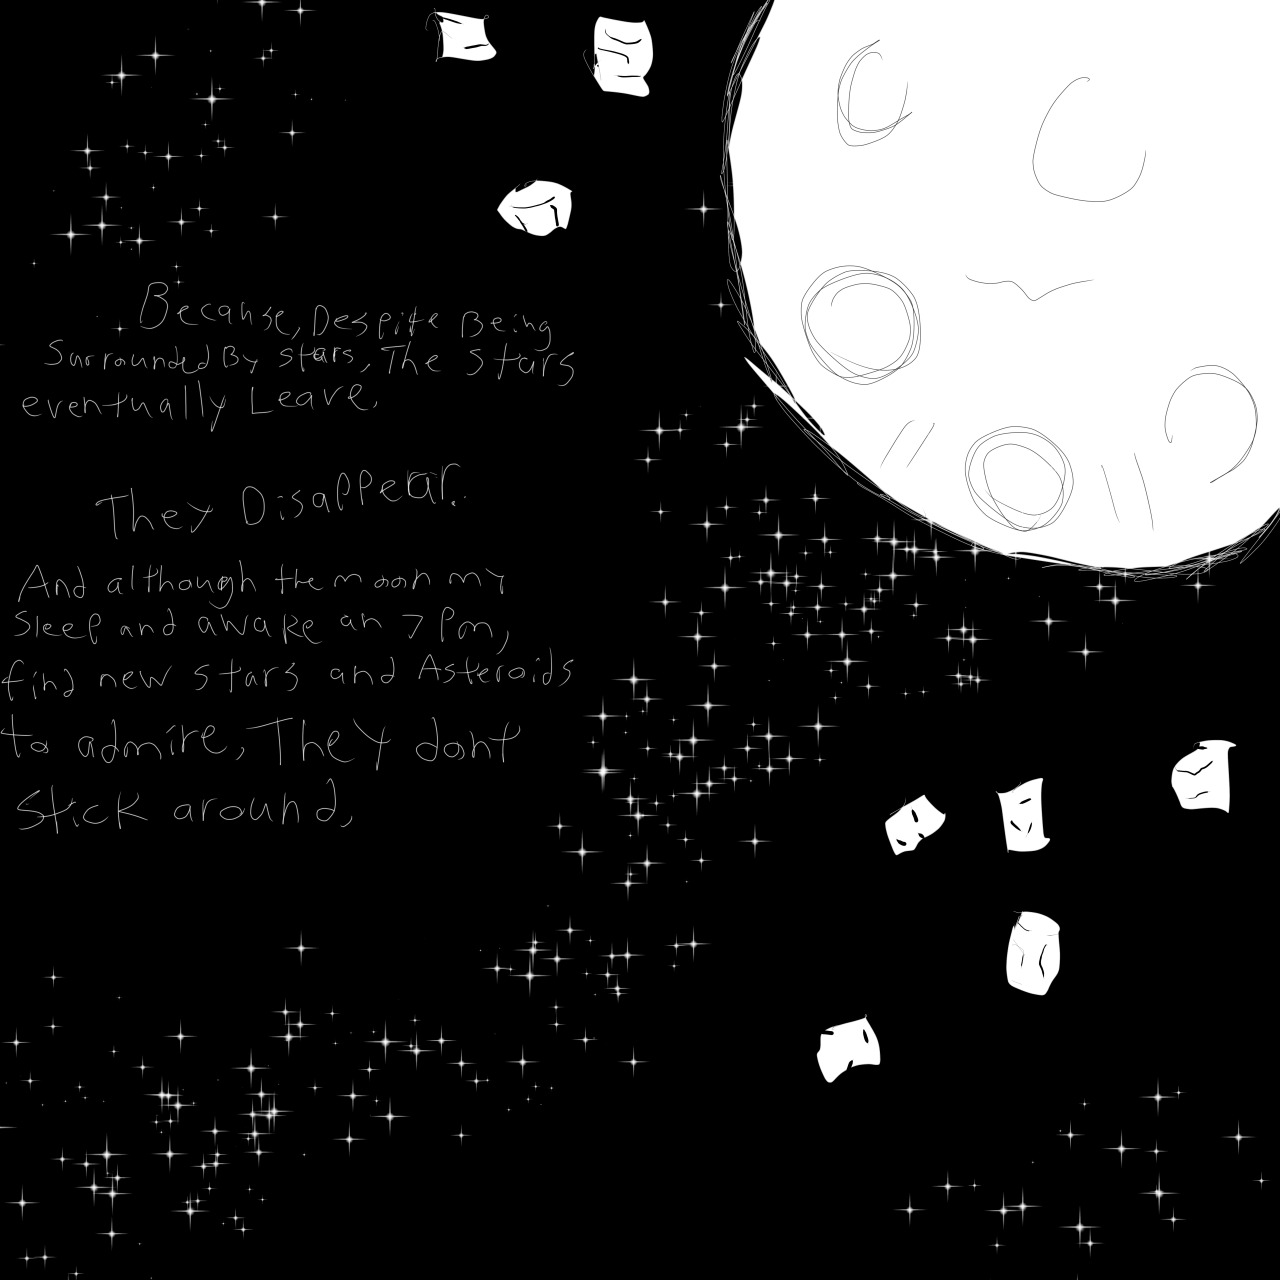 Because, Despite Being
Surrounded By stars, The stars
eventually Leave.
They Disappear.
And although the moon my
Sleep and awake an 7 Pm,
find new stars and Asteroids
to admire, They dont
stick around,